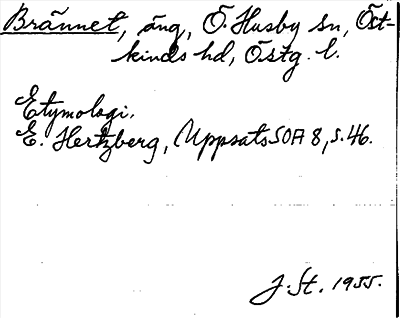 Brännet, äng, Ö. Husby sn, Öst-
kinds hd, Östg. l.
Etymologi.
E. Hertzberg, Uppsats SOA 8, s. 46.
J. St. 1955.